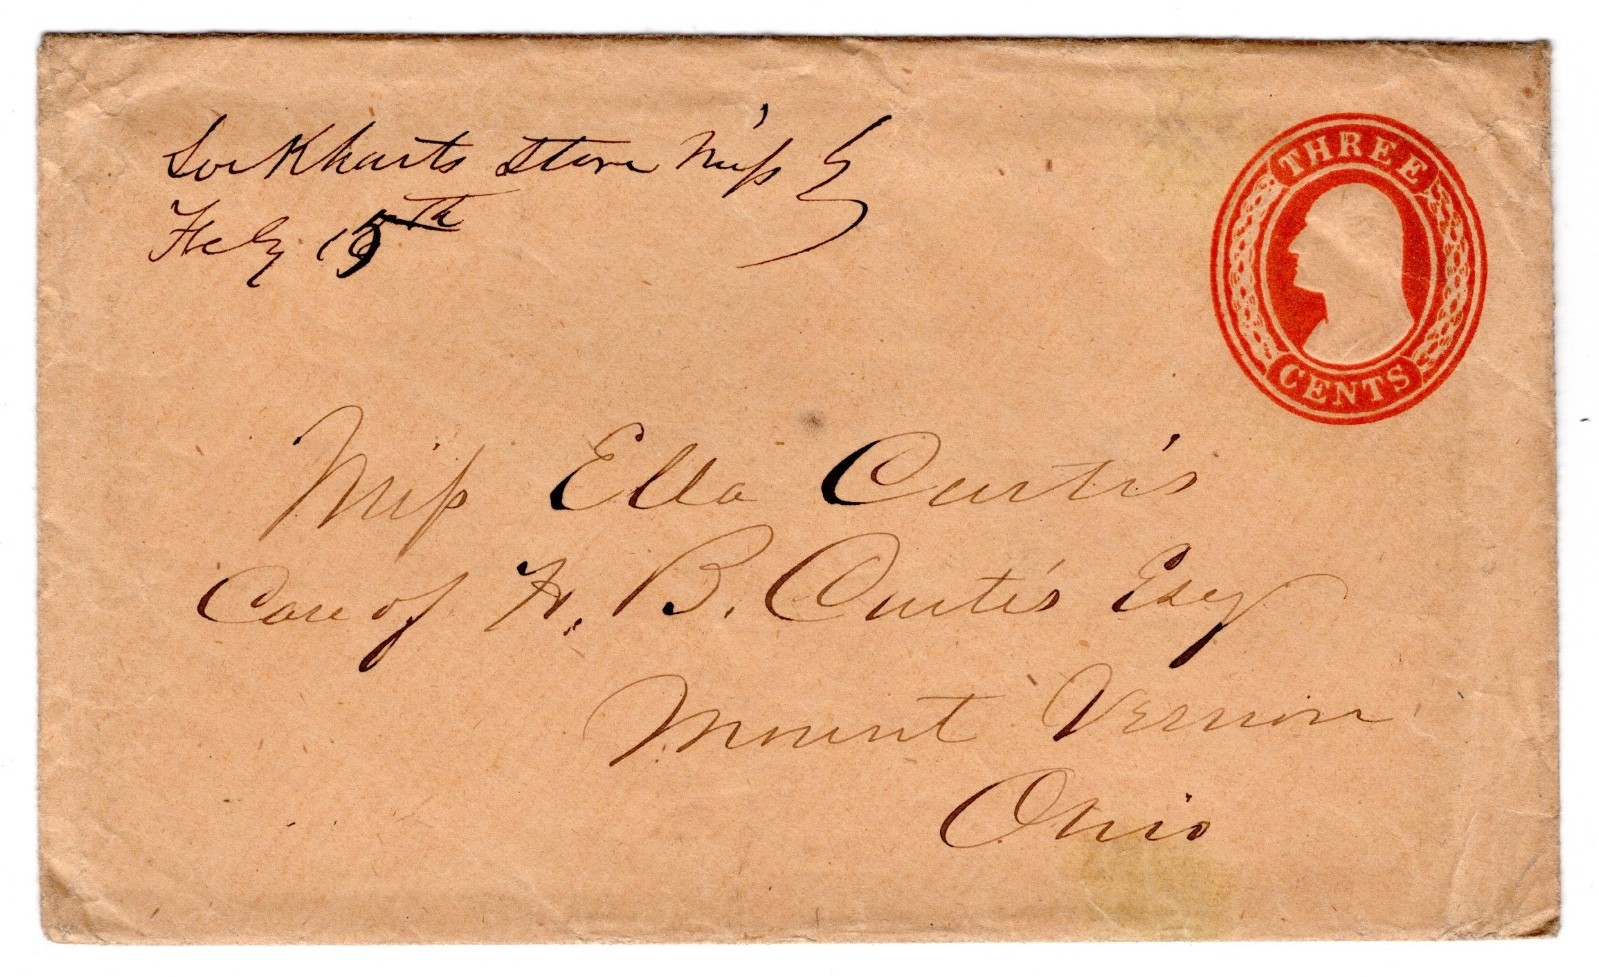 Lockharts Store Miss
Feby 15th
THREE
CENTS
Miss Ella Curtis
Care of H. B. Curtis Esq
Mount Vernon
Ohio